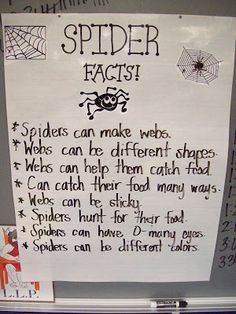 SPIDER
FACTS!
* Spiders can make webs.
* Webs can be different shapes.
* Webs can help them catch food.
* Can catch their food many ways.
* Webs can be sticky.
* Spiders hunt for their food.
* Spiders can have 0-many eyes.
* Spiders can be different colors.
L.L.P.